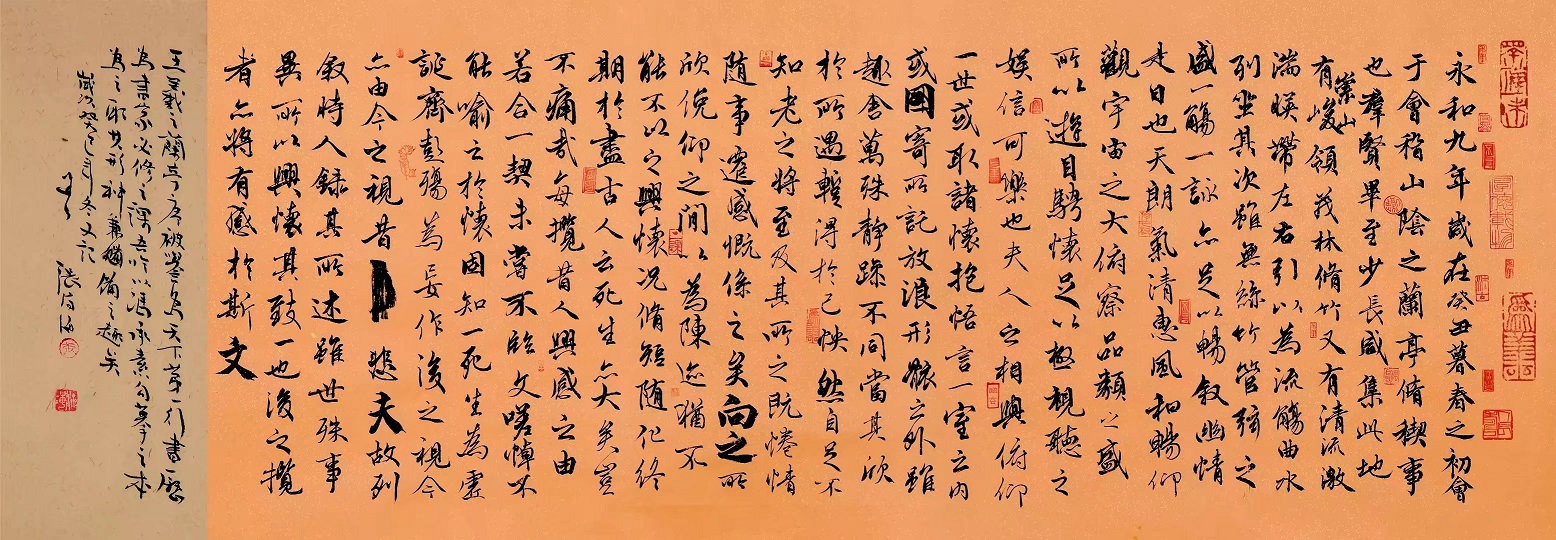 永和九年歲在癸丑暮春之初會
于會稽山陰之蘭亭脩稧事
也羣賢畢至少長咸集此地
有崇山峻領茂林脩竹又有清流激
湍暎帶左右引以為流觴曲水
列坐其次雖無絲竹管弦之
盛一觴一詠亦足以暢叙幽情
是日也天朗氣清惠風和暢仰
觀宇宙之大俯察品類之盛
所以遊目騁懷足以極視聽之
娛信可樂也夫人之相與俯仰
一世或取諸懷抱悟言一室之內
或因寄所託放浪形骸之外雖
趣舍萬殊靜躁不同當其欣
於所遇蹔得於己怏然自足不
知老之將至及其所之既惓情
隨事遷感慨係之矣向之所
欣俛仰之間以為陳迹猶不
能不以之興懷況脩短隨化終
期於盡古人云死生亦大矣豈
不痛哉每攬昔人興感之由
若合一契未嘗不臨文嗟悼不
能喻之於懷固知一死生為虛
誕齊彭殤為妄作後之視今
亦由今之視昔悲夫故列
叙時人錄其所述雖世殊事
異所以興懷其致一也後之攬
者亦將有感於斯文
王羲之蘭亭序被譽為天下第一行書歷
為書家必修之課吾以馮承素勾摹之本
為之取其形神兼備之趣矣
歲次癸巳年冬又記